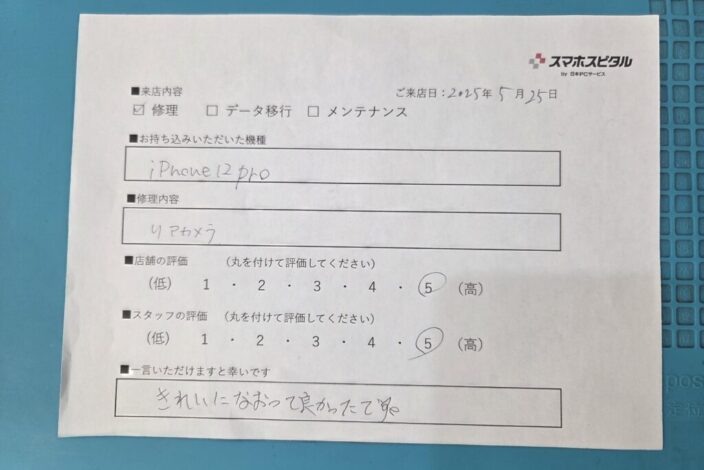 スマホスピタル
by 日本PCサービス
■来店内容
ご来店日：2025年 5月 25日
☑ 修理 □ データ移行 □ メンテナンス
■お持ち込みいただいた機種
iPhone12 pro
■修理内容
リアカメラ
■店舗の評価 （丸を付けて評価してください）
（低） 1 ・ 2 ・ 3 ・ 4 ・ 5 （高）
■スタッフの評価 （丸を付けて評価してください）
（低） 1 ・ 2 ・ 3 ・ 4 ・ 5 （高）
■一言いただけますと幸いです
きれいになおって良かったです。